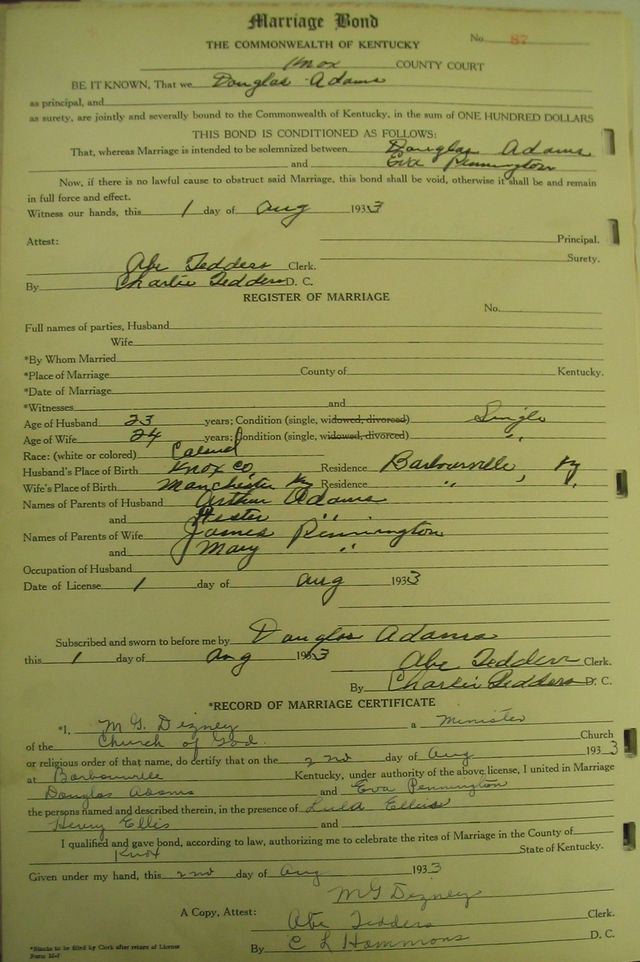 Marriage Bond
No. 87
THE COMMONWEALTH OF KENTUCKY
Knox COUNTY COURT
BE IT KNOWN, That we Douglas Adams
as principal, and
as surety, are jointly and severally bound to the Commonwealth of Kentucky, in the sum of ONE HUNDRED DOLLARS
THIS BOND IS CONDITIONED AS FOLLOWS:
That, whereas Marriage is intended to be solemnized between Douglas Adams
and Eva Pennington
Now, if there is no lawful cause to obstruct said Marriage, this bond shall be void, otherwise it shall be and remain
in full force and effect.
Witness our hands, this 1 day of Aug 1933
Attest: Principal.
Surety.
Abe Tedders Clerk.
By Charlie Tedders D. C.
REGISTER OF MARRIAGE
No.
Full names of parties, Husband
Wife
*By Whom Married
*Place of Marriage County of Kentucky.
*Date of Marriage
*Witnesses and
Age of Husband 23 years; Condition (single, widowed, divorced) Single
Age of Wife 24 years; Condition (single, widowed, divorced) "
Race: (white or colored) Colored
Husband's Place of Birth Knox Co, Residence Barbourville, Ky
Wife's Place of Birth Manchester Ky Residence " , "
Names of Parents of Husband Arthur Adams
and Hester "
Names of Parents of Wife James Pennington
and Mary "
Occupation of Husband
Date of License 1 day of Aug 1933
Subscribed and sworn to before me by Douglas Adams
this 1 day of Aug 1933 Abe Tedders Clerk.
By Charlie Tedders D. C.
*RECORD OF MARRIAGE CERTIFICATE
*I, M G. Dizney a Minister
of the Church of God. Church
or religious order of that name, do certify that on the 2nd day of Aug 1933
at Barbourville Kentucky, under authority of the above license, I united in Marriage
Douglas Adams and Eva Pennington
the persons named and described therein, in the presence of Lula Ellis
Henry Ellis and
I qualified and gave bond, according to law, authorizing me to celebrate the rites of Marriage in the County of
Knox State of Kentucky.
Given under my hand, this 2nd day of Aug 1933
M G Dizney
A Copy, Attest: Abe Tedders Clerk.
By C L Hammons D. C.
*Blanks to be filed by Clerk after return of License